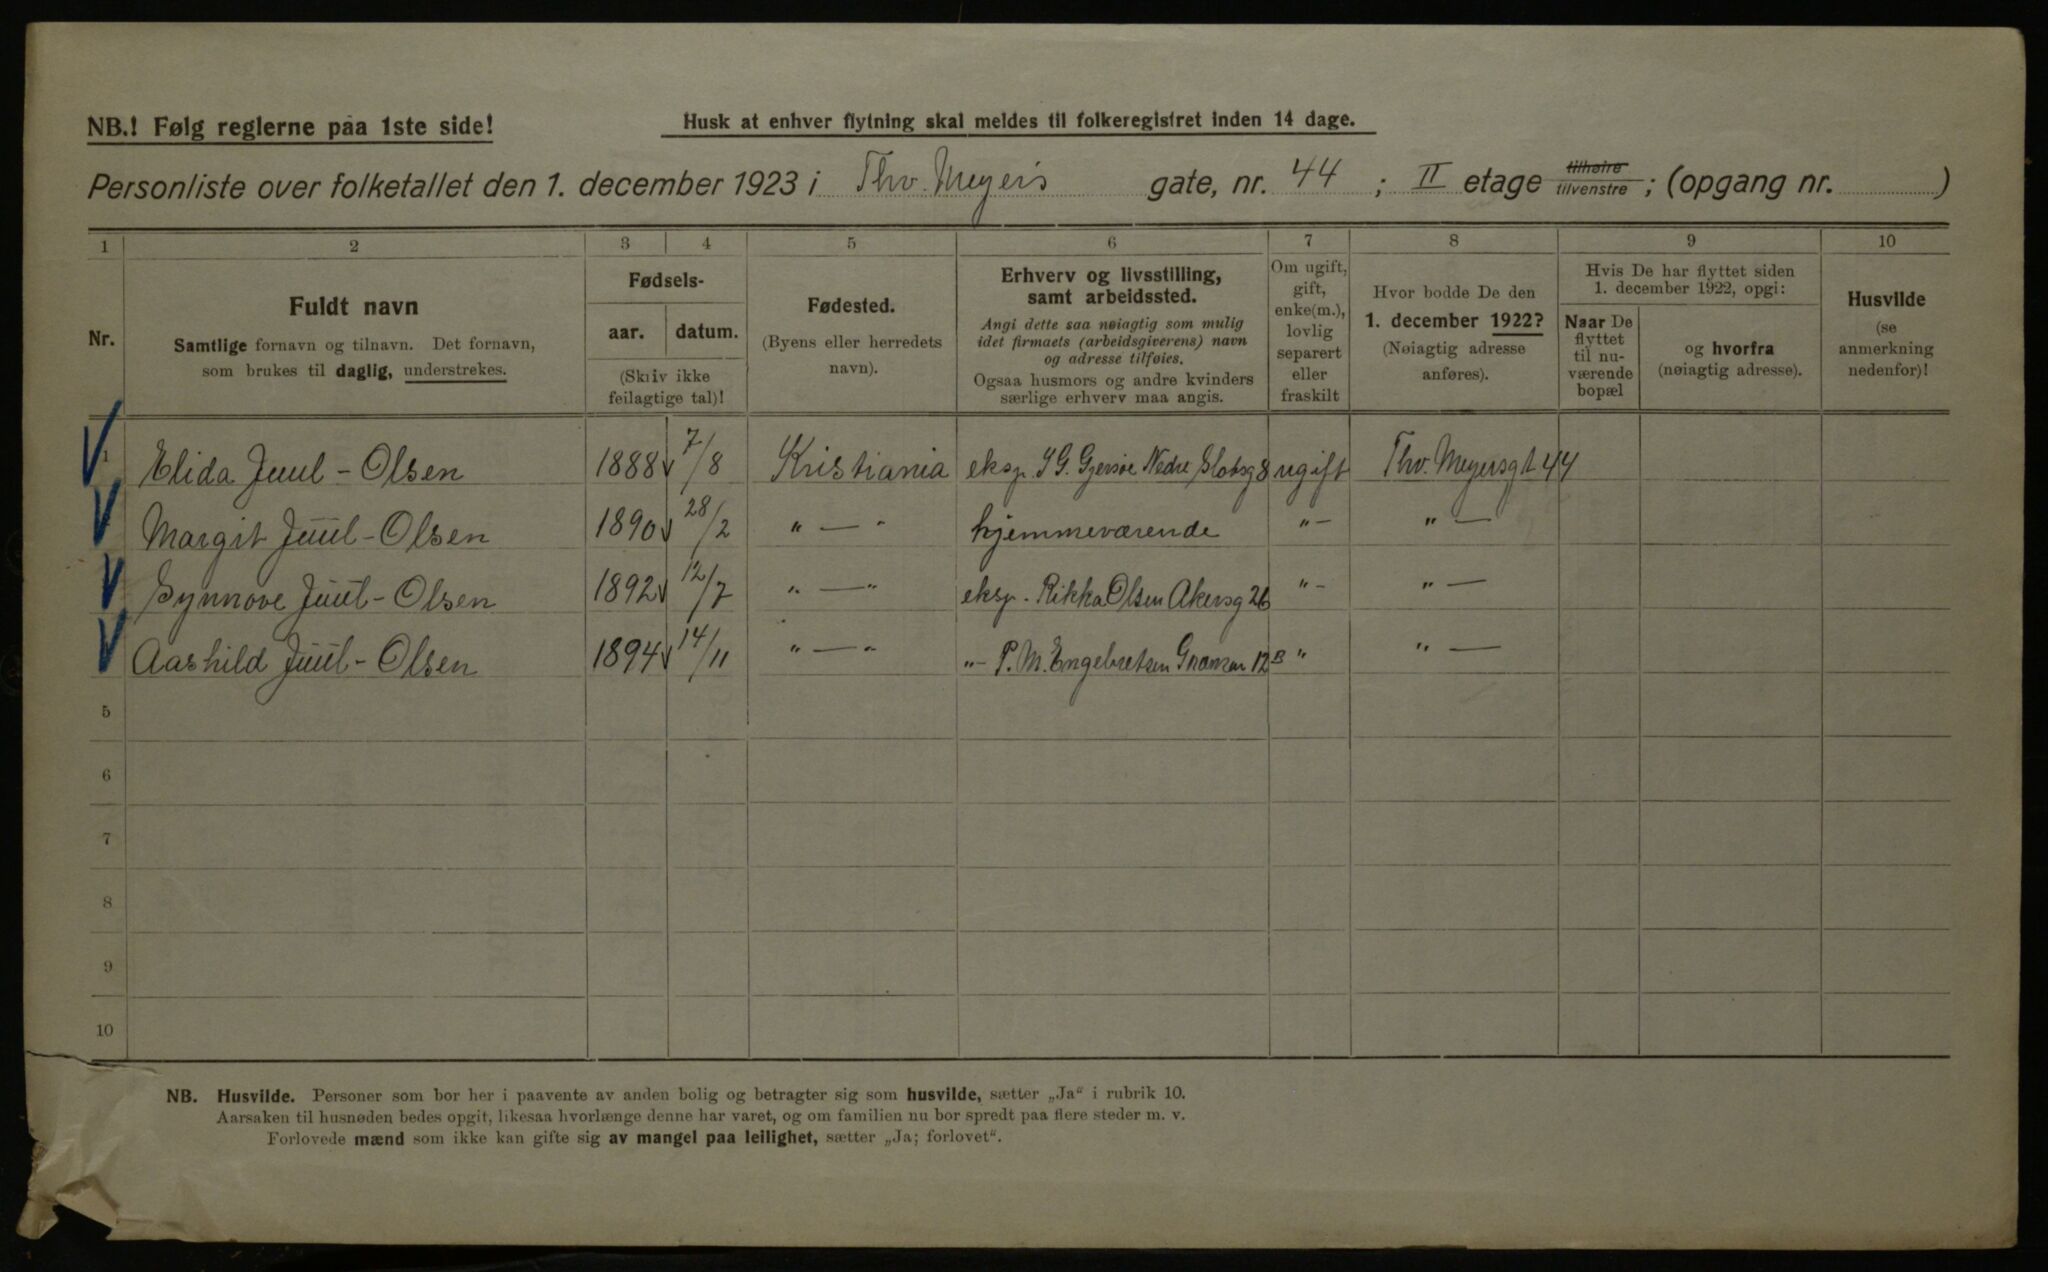 NB.! Følg reglerne paa 1ste side!
Husk at enhver flytning skal meldes til folkeregistret inden 14 dage.
Personliste over folketallet den 1. december 1923 i Thv. Meyers gate, nr. 44 ; II etage tilhøire tilvenstre ; (opgang nr. )
1 2 3 4 5 6 7 8 9 10
Nr.
Fuldt navn
Samtlige fornavn og tilnavn. Det fornavn,
som brukes til daglig, understrekes.
Fødsels-
aar. datum.
(Skriv ikke
feilagtige tal)!
Fødested.
(Byens eller herredets
navn).
Erhverv og livsstilling,
samt arbeidssted.
Angi dette saa nøiagtig som mulig
idet firmaets (arbeidsgiverens) navn
og adresse tilføies.
Ogsaa husmors og andre kvinders
særlige erhverv maa angis.
Om ugift,
gift,
enke(m.),
lovlig
separert
eller
fraskilt
Hvor bodde De den
1. december 1922?
(Nøiagtig adresse
anføres).
Hvis De har flyttet siden
1. december 1922, opgi:
Naar De
flyttet
til nu-
værende
bopæl
og hvorfra
(nøiagtig adresse).
Husvilde
(se
anmerkning
nedenfor)!
1 Elida Juul-Olsen 1888 7/8 Kristiania eksp. Nedre Slotsg 8 ugift Thv. Meyersgt 44
Margit Juul-Olsen 1890 28/2 " — " hjemmeværende " — " —
Synnove Juul-Olsen 1892 12/7 " — " eksp. Rikka Olsen Akersg 26 " — " —
Aashild Juul-Olsen 1894 14/11 " — " " — P. M. Engebretsen 12B " " —
5
6
7
8
9
10
NB. Husvilde. Personer som bor her i paavente av anden bolig og betragter sig som husvilde, sætter „Ja“ i rubrik 10.
Aarsaken til husnøden bedes opgit, likesaa hvorlænge denne har varet, og om familien nu bor spredt paa flere steder m. v.
Forlovede mænd som ikke kan gifte sig av mangel paa leilighet, sætter „Ja; forlovet“.